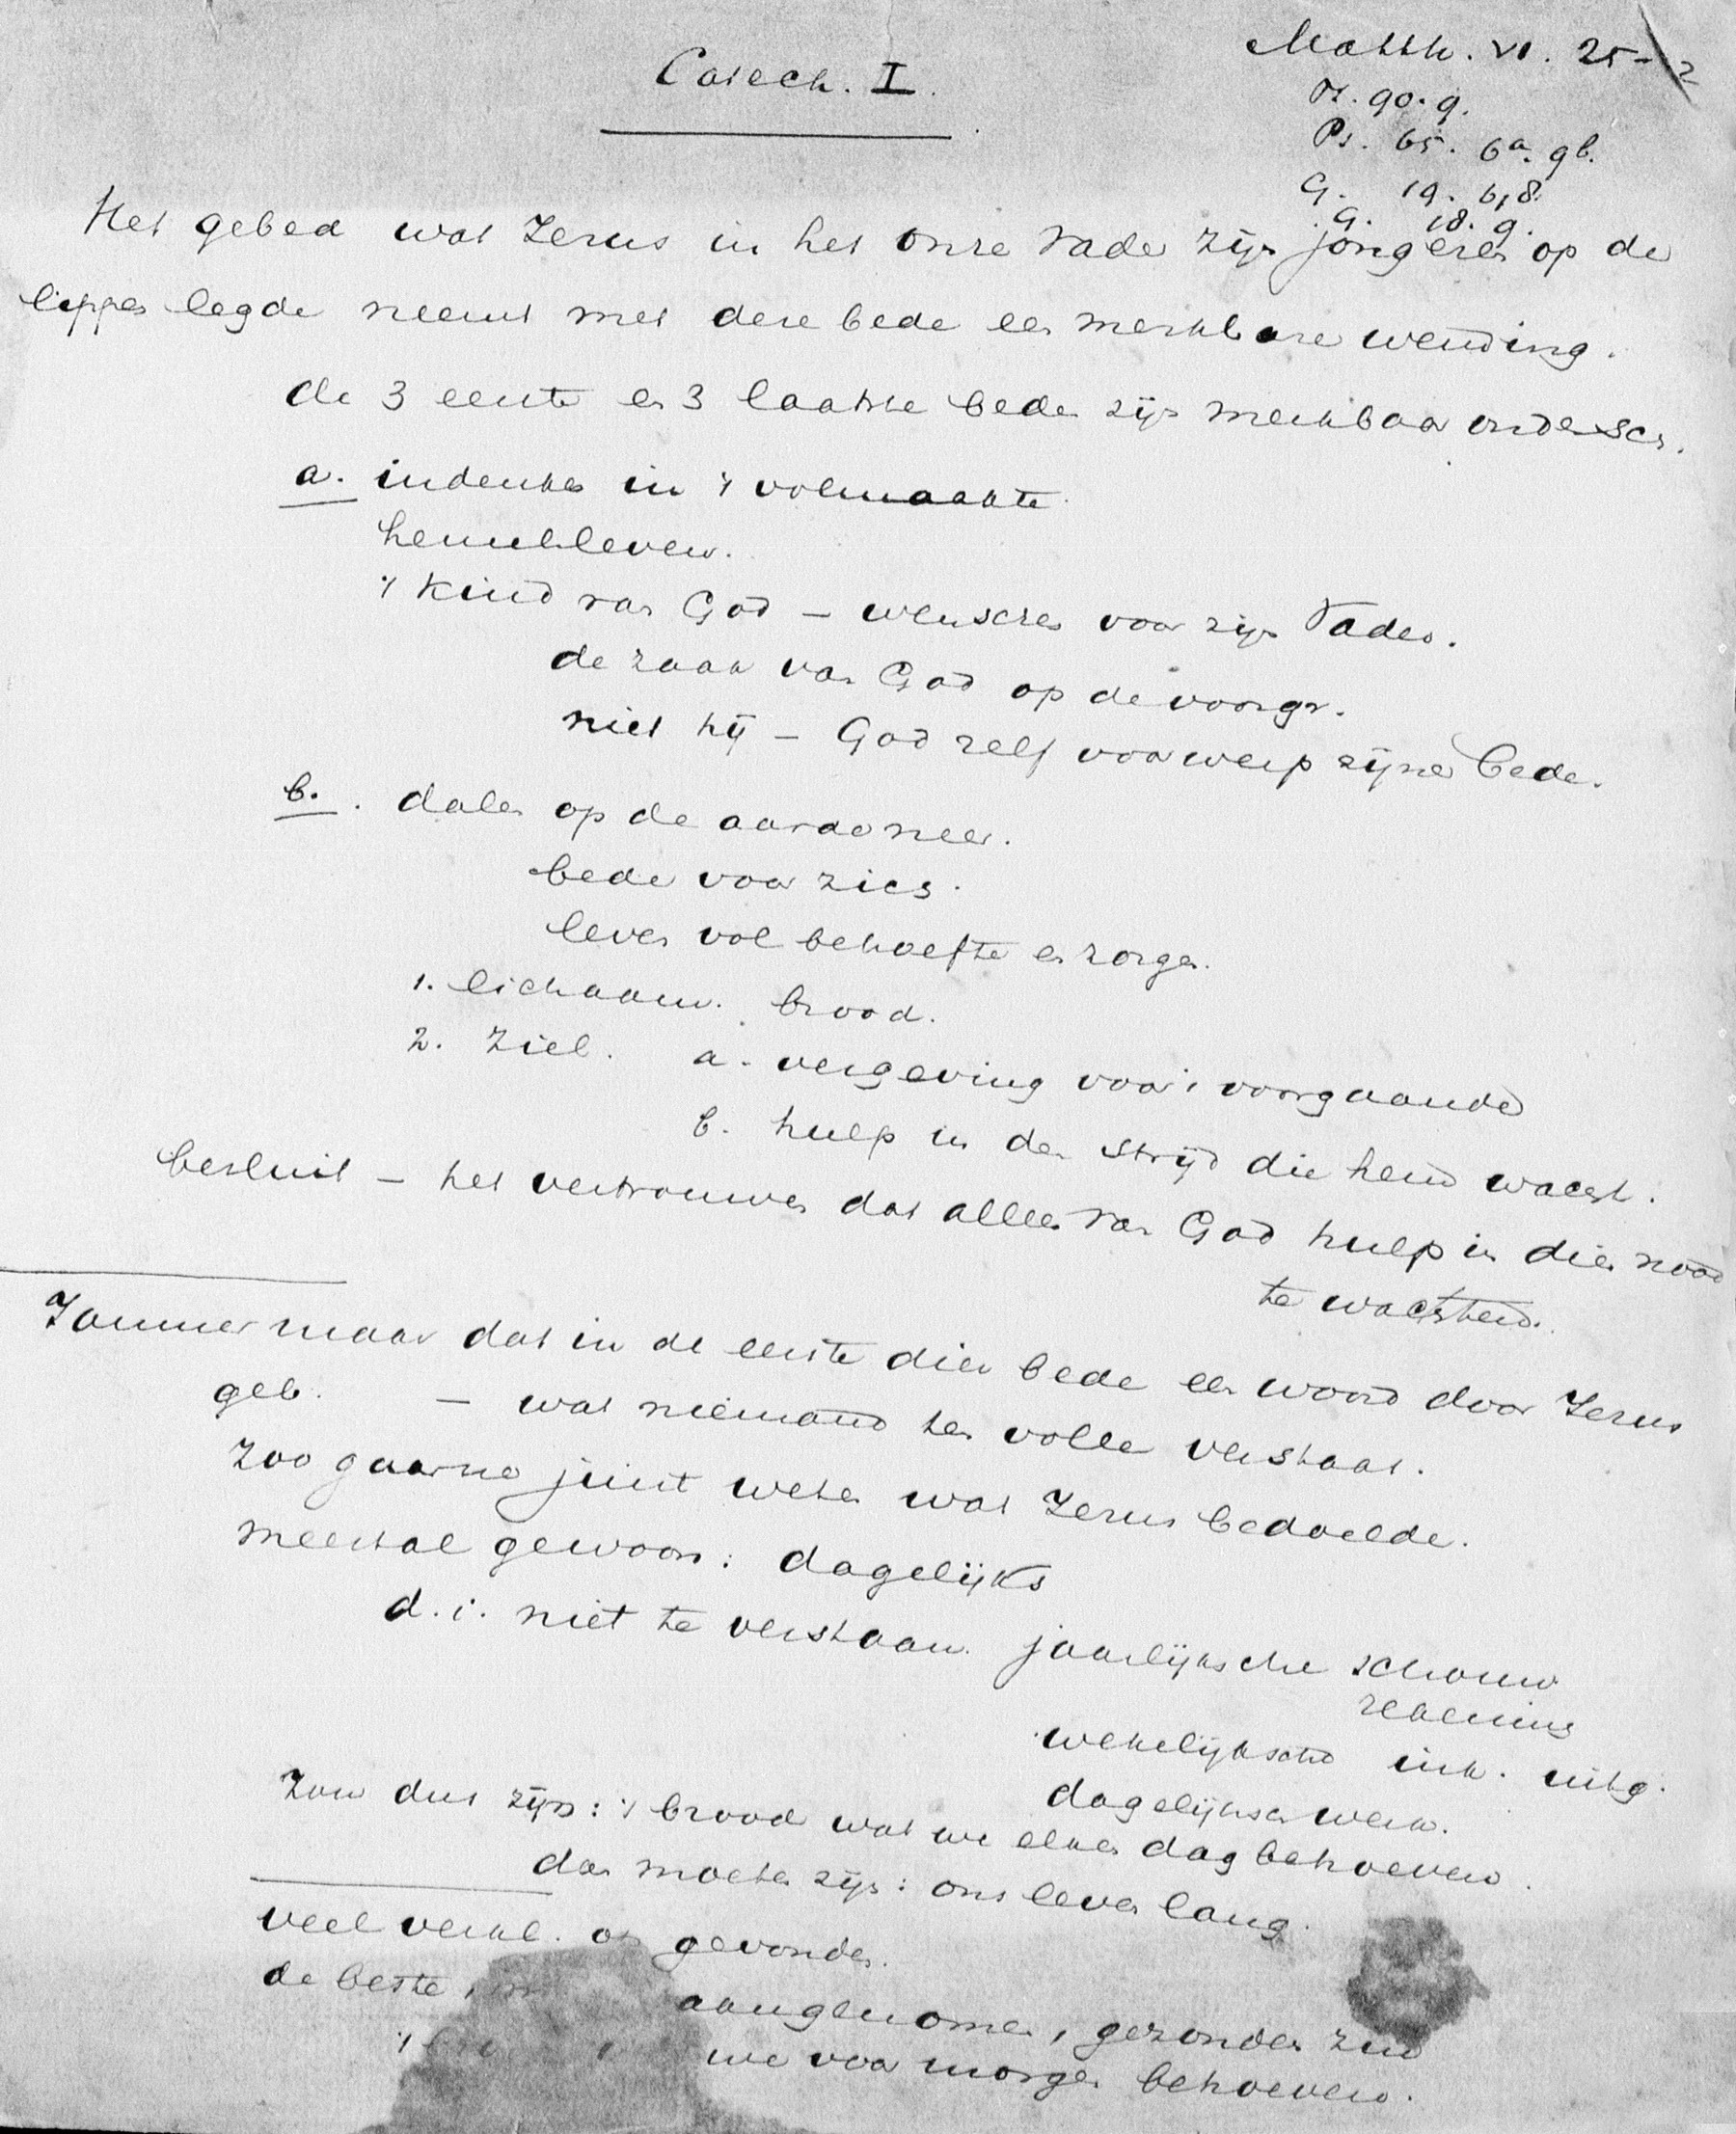 Catech. I.
Matth. VI. 25-
Ps. 90. 9.
Ps. 65. 6a. 9b.
G. 19. 6,8.
G. 18. 9.
Het gebed wat Jezus in het Onze Vader zijn jongeren op de
lippen legde neemt met deze bede een merkbare wending.
de 3 eerste en 3 laatste beden zijn merkbaar ondersch.
a. indenken in 't volmaakte
hemelleven.
't Kind van God – wenschen voor zijn Vader.
de zaak van God op de voorgr.
niet hij – God zelf voorwerp zijner bede.
b. dalen op de aarde neer.
bede voor zich.
leven vol behoefte en zorgen.
1. lichaam. brood.
2. Ziel. a. vergeving voor 't voorgaande
b. hulp in den strijd die hem wacht.
besluit – het vertrouwen dat alleen van God hulp in dien nood
te wachten.
Jammer maar dat in de eerste dier bede een woord door Jezus
geb. – wat niemand ten volle verstaat.
Zoo gaarne juist weten wat Jezus bedoelde.
meestal gewoon: dagelijks
d.i. niet te verstaan. jaarlijksche schouw
rekening
wekelijksche ink. uitg.
dagelijksch werk.
Zou dus zijn: 't brood wat we elken dag behoeven.
dan moeten zijn: ons leven lang.
veel verkl. gevonden.
de beste aangenomen, gezonden zin
't we voor morgen behoeven.